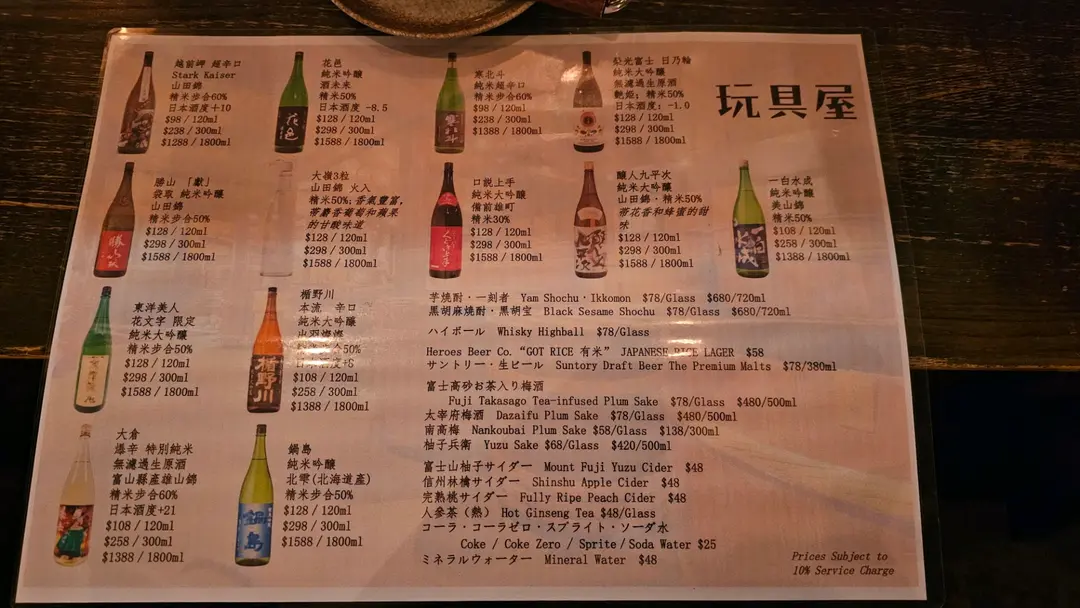 玩具屋
越前岬 超辛口
Stark Kaiser
山田錦
精米步合60%
日本酒度+10
$98 / 120ml
$238 / 300ml
$1288 / 1800ml
花邑
純米吟醸
酒未来
精米50%
日本酒度 -8.5
$128 / 120ml
$298 / 300ml
$1588 / 1800ml
寒北斗
純米超辛口
精米步合60%
$98 / 120ml
$238 / 300ml
$1388 / 1800ml
栄光冨士 日乃輪
純米大吟醸
無濾過生原酒
艶姫; 精米50%
日本酒度: -1.0
$128 / 120ml
$298 / 300ml
$1588 / 1800ml
勝山 「獻」
袋取 純米吟醸
山田錦
精米步合50%
$128 / 120ml
$298 / 300ml
$1588 / 1800ml
大嶺3粒
山田錦 火入
精米50%;香氣豐富,
帶麝香葡萄和蘋果
的甘酸味道
$128 / 120ml
$298 / 300ml
$1588 / 1800ml
口説上手
純米大吟醸
備前雄町
精米30%
$128 / 120ml
$298 / 300ml
$1588 / 1800ml
醸人九平次
純米大吟醸
山田錦・精米50%
帶花香和蜂蜜的甜
味
$128 / 120ml
$298 / 300ml
$1588 / 1800ml
一白水成
純米吟醸
美山錦
精米50%
$108 / 120ml
$258 / 300ml
$1388 / 1800ml
東洋美人
花文字 限定
純米大吟醸
精米步合50%
$128 / 120ml
$298 / 300ml
$1588 / 1800ml
楯野川
本流 辛口
純米大吟醸
出羽燦燦
精米步合50%
日本酒度+8
$108 / 120ml
$258 / 300ml
$1388 / 1800ml
大倉
爆辛 特別純米
無濾過生原酒
富山縣產雄山錦
精米步合60%
日本酒度+21
$108 / 120ml
$258 / 300ml
$1388 / 1800ml
鍋島
純米吟醸
北雫(北海道産)
精米步合50%
$128 / 120ml
$298 / 300ml
$1588 / 1800ml
芋焼酎・一刻者 Yam Shochu・Ikkomon $78/Glass $680/720ml
黒胡麻焼酎・黒胡宝 Black Sesame Shochu $78/Glass $680/720ml
ハイボール Whisky Highball $78/Glass
Heroes Beer Co. “GOT RICE 有米” JAPANESE RICE LAGER $58
サントリー・生ビール Suntory Draft Beer The Premium Malts $78/380ml
富士高砂お茶入り梅酒
Fuji Takasago Tea-infused Plum Sake $78/Glass $480/500ml
太宰府梅酒 Dazaifu Plum Sake $78/Glass $480/500ml
南高梅 Nankoubai Plum Sake $58/Glass $138/300ml
柚子兵衛 Yuzu Sake $68/Glass $420/500ml
富士山柚子サイダー Mount Fuji Yuzu Cider $48
信州林檎サイダー Shinshu Apple Cider $48
完熟桃サイダー Fully Ripe Peach Cider $48
人参茶(熱) Hot Ginseng Tea $48/Glass
コーラ・コーラゼロ・スプライト・ソーダ水
Coke / Coke Zero / Sprite / Soda Water $25
ミネラルウォーター Mineral Water $48
Prices Subject to
10% Service Charge